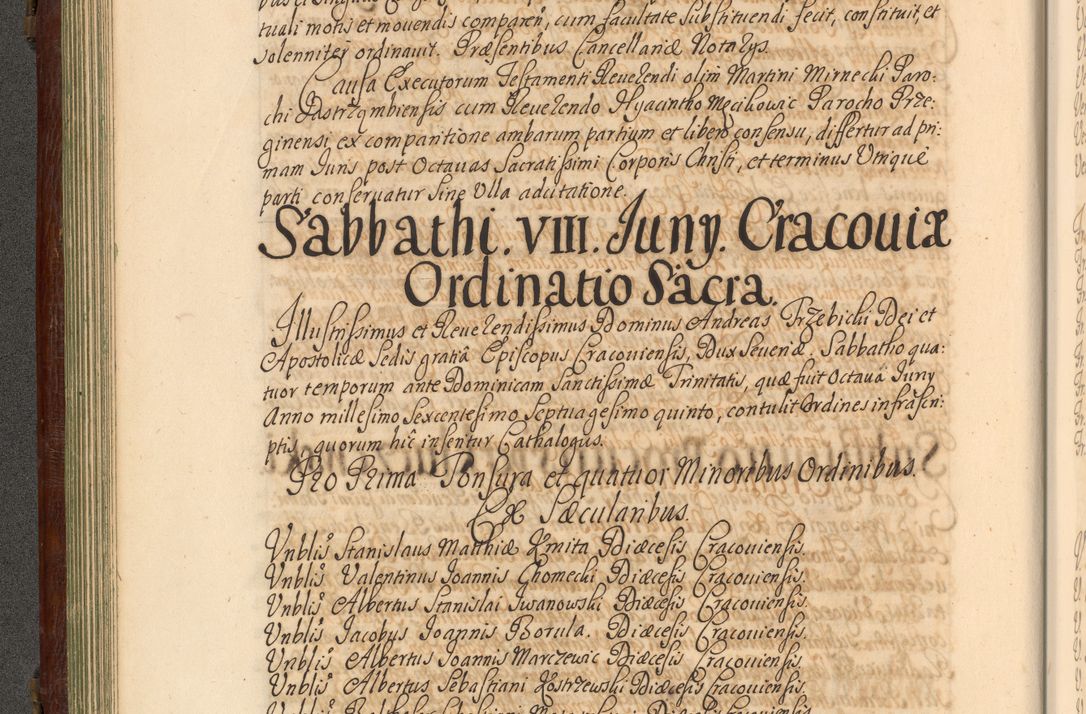 tuali motis et mouendis comparen̄, cum facultate substituendi fecit, constituit, et
solenniter ordinauit. Præsentibus Cancellariæ Notarys.
Causa Executorum Testamenti Reuerendi olim Martini Mirnecki Paro-
chi Jastrzymbiensis cum Reuerendo Hyacintho Męcikowic Parocho Prze-
ginensi, ex comparitione ambarum partium et libero consensu, differtur ad pri-
mam Iuris post Octauas Sacratissimi Corporis Christi, et terminus Utrique
parti conseruatur sine Ulla aduitatione.
Sabbathi. VIII. Iuny. Cracouiæ
Ordinatio Sacra.
Illustrissimus et Reuerendissimus Dominus Andreas Trzebicki Dei et
Apostolicæ Sedis gratiâ Episcopus Cracouiensis, Dux Seueriæ. Sabbatho qua-
tuor temporum ante Dominicam Sanctissimæ Trinitatis, quæ fuit Octaua Iuny
Anno millesimo Sexcentesimo Septuagesimo quinto, contulit Ordines infrascri-
ptis, quorum hîc inseritur Cathalogus.
Pro Prima Tonsura et quatuor Minoribus Ordinibus.
Ex Sæcularibus.
Vnblis Stanislaus Matthiæ Kmita Diæcesis Cracouiensis.
Vnblis Valentinus Joannis Chomecki Diæcesis Cracouiensis.
Vnblis Albertus Stanislai Iwanowski Diæcesis Cracouiensis.
Vnblis Jacobus Joannis Borula. Diæcesis Cracouiensis.
Vnblis Albertus Joannis Marczewic Diæcesis Cracouiensis.
Vnblis Albertus Sebastiani Kostrzewski Diæcesis Cracouiensis.